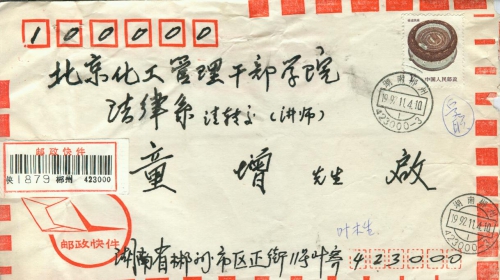 100000
北京化工管理干部学院
法律系 请转交(讲师)
童 增 先生 启
中国人民邮政
湖南郴州
1992.11.4.10
423000-3
邮政快件
快 1879 郴州 423000
邮政快件
叶木生
湖南省郴州市区正街11号叶寄 423000
湖南郴州
1992.11.4.10
423000-3